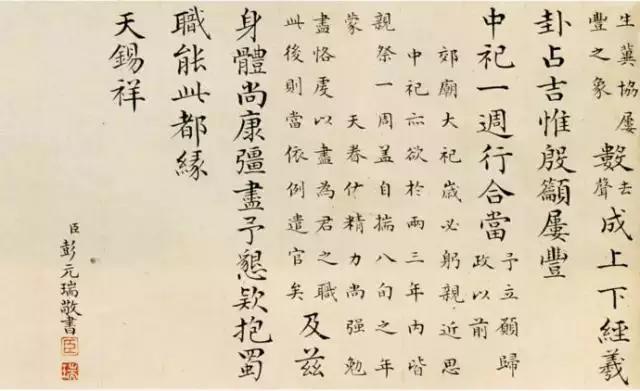 生冀協屢
豐之象
數去聲成上下經義
卦占吉惟殷籲屢豐
中祀一週行合當
予立願歸
政以前
郊廟大祀歲必躬親近思
中祀亦欲於兩三年內皆
親祭一周蓋自揣八旬之年
蒙天眷佑精力尚强勉
盡恪虔以盡為君之職
此後則當依例遣官矣
及茲
身體尚康彊盡予懇欵抱蜀
職能此都緣
天錫祥
臣彭元瑞敬書
臣
瑞